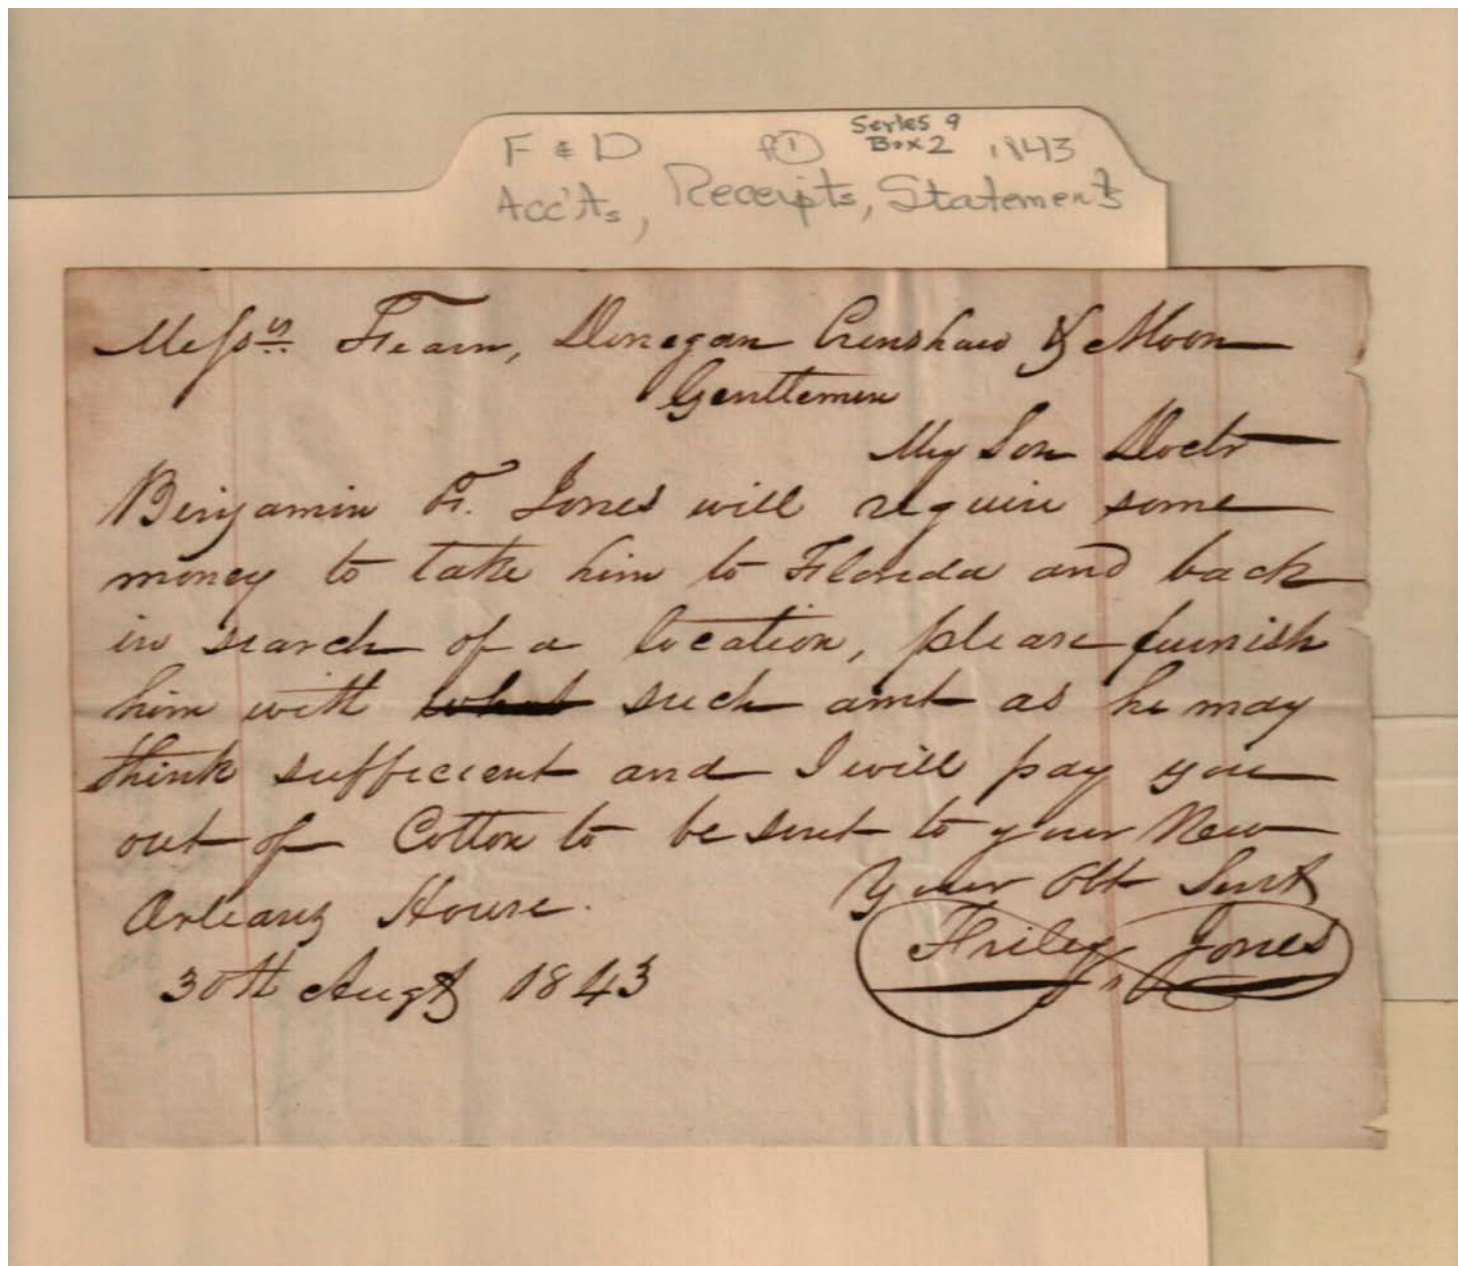 F & D ① Series 9 1843
Box 2
Acc'ts, Receipts, Statements
Messrs Fearn, Donegan Crenshaw & Moon
Gentlemen
My Son Doctr
Benjamin F. Jones will require some
money to take him to Florida and back
in search of a location, please furnish
him with what such amt as he may
think sufficient and I will pay you
out of Cotton to be sent to your New
Orleans House.
Your Obt Servt
Friley Jones
30th Augt 1843